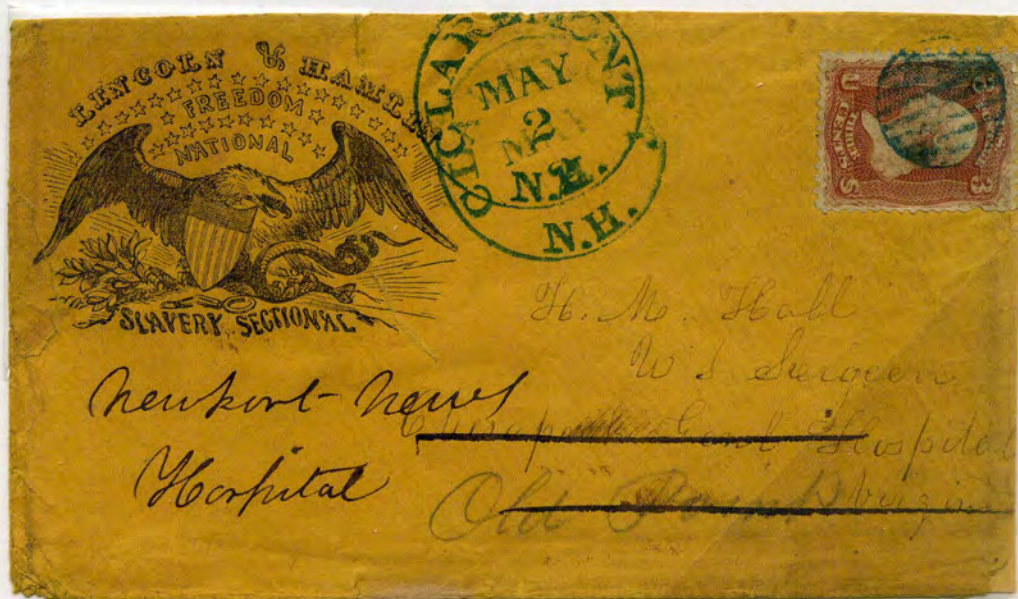 LINCOLN & HAMLIN
FREEDOM
NATIONAL
SLAVERY SECTIONAL
CLAREMONT
MAY
2
N.H.
N.H.
U S
3 CENTS 3
H. M. Hall
U S Surgeon
Chesapeake Genl Hospital
Old Point Virginia
Newport-News
Hospital